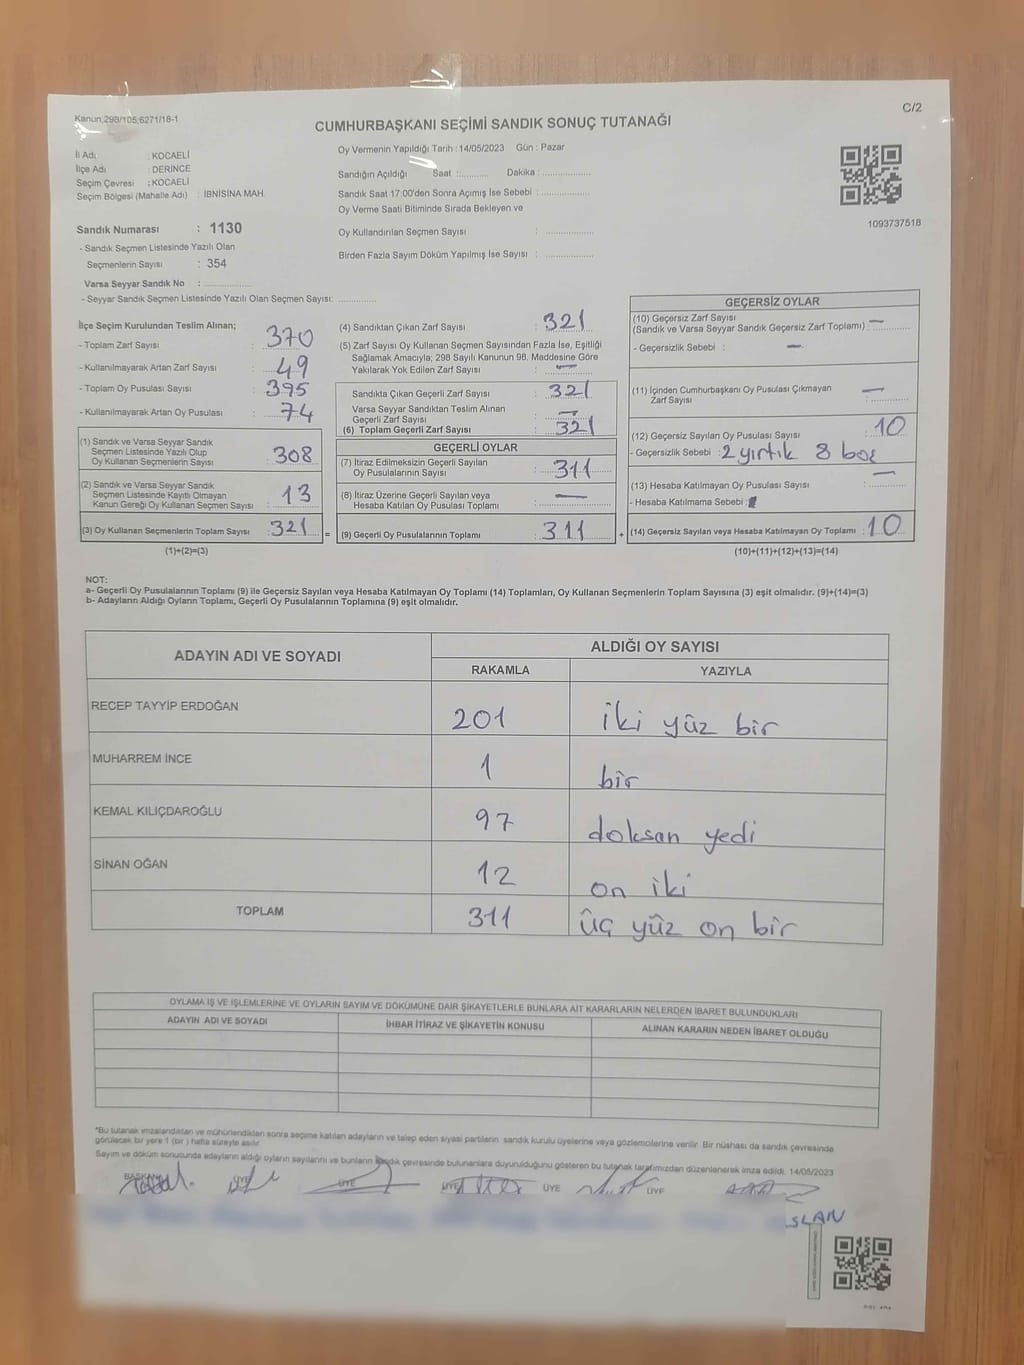 Kanun;298/105;6271/18-1
C/2
CUMHURBAŞKANI SEÇİMİ SANDIK SONUÇ TUTANAĞI
İl Adı : KOCAELİ
İlçe Adı : DERİNCE
Seçim Çevresi : KOCAELİ
Seçim Bölgesi (Mahalle Adı) : İBNİSİNA MAH.
Sandık Numarası : 1130
- Sandık Seçmen Listesinde Yazılı Olan
Seçmenlerin Sayısı : 354
Varsa Seyyar Sandık No : ...............
- Seyyar Sandık Seçmen Listesinde Yazılı Olan Seçmen Sayısı: ............
Oy Vermenin Yapıldığı Tarih : 14/05/2023 Gün : Pazar
Sandığın Açıldığı Saat :......... Dakika : ...............
Sandık Saat 17:00'den Sonra Açılmış İse Sebebi : ...............
Oy Verme Saati Bitiminde Sırada Bekleyen ve
Oy Kullandırılan Seçmen Sayısı : ...............
Birden Fazla Sayım Döküm Yapılmış İse Sayısı : ...............
1093737518
İlçe Seçim Kurulundan Teslim Alınan;
- Toplam Zarf Sayısı : 370
- Kullanılmayarak Artan Zarf Sayısı : 49
- Toplam Oy Pusulası Sayısı : 395
- Kullanılmayarak Artan Oy Pusulası : 74
(1) Sandık ve Varsa Seyyar Sandık
Seçmen Listesinde Yazılı Olup
Oy Kullanan Seçmenlerin Sayısı : 308
(2) Sandık ve Varsa Seyyar Sandık
Seçmen Listesinde Kayıtlı Olmayan
Kanun Gereği Oy Kullanan Seçmen Sayısı : 13
(3) Oy Kullanan Seçmenlerin Toplam Sayısı : 321 =
(1)+(2)=(3)
(4) Sandıktan Çıkan Zarf Sayısı : 321
(5) Zarf Sayısı Oy Kullanan Seçmen Sayısından Fazla İse, Eşitliği
Sağlamak Amacıyla; 298 Sayılı Kanunun 98. Maddesine Göre
Yakılarak Yok Edilen Zarf Sayısı : —
Sandıkta Çıkan Geçerli Zarf Sayısı : 321
Varsa Seyyar Sandıktan Teslim Alınan
Geçerli Zarf Sayısı : —
(6) Toplam Geçerli Zarf Sayısı : 321
GEÇERLİ OYLAR
(7) İtiraz Edilmeksizin Geçerli Sayılan
Oy Pusulasının Sayısı : 311
(8) İtiraz Üzerine Geçerli Sayılan veya
Hesaba Katılan Oy Pusulası Toplamı : —
(9) Geçerli Oy Pusulalarının Toplamı : 311 +
GEÇERSİZ OYLAR
(10) Geçersiz Zarf Sayısı
(Sandık ve Varsa Seyyar Sandık Geçersiz Zarf Toplamı) : —
- Geçersizlik Sebebi : —
(11) İçinden Cumhurbaşkanı Oy Pusulası Çıkmayan
Zarf Sayısı : —
(12) Geçersiz Sayılan Oy Pusulası Sayısı : 10
- Geçersizlik Sebebi : 2 yırtık 8 boş
(13) Hesaba Katılmayan Oy Pusulası Sayısı : —
- Hesaba Katılmama Sebebi :
(14) Geçersiz Sayılan veya Hesaba Katılmayan Oy Toplamı : 10
(10)+(11)+(12)+(13)=(14)
NOT:
a- Geçerli Oy Pusulalarının Toplamı (9) ile Geçersiz Sayılan veya Hesaba Katılmayan Oy Toplamı (14) Toplamları, Oy Kullanan Seçmenlerin Toplam Sayısına (3) eşit olmalıdır. (9)+(14)=(3)
b- Adayların Aldığı Oyların Toplamı, Geçerli Oy Pusulalarının Toplamına (9) eşit olmalıdır.
ADAYIN ADI VE SOYADI ALDIĞI OY SAYISI
RAKAMLA YAZIYLA
RECEP TAYYİP ERDOĞAN 201 iki yüz bir
MUHARREM İNCE 1 bir
KEMAL KILIÇDAROĞLU 97 doksan yedi
SİNAN OĞAN 12 on iki
TOPLAM 311 üç yüz on bir
OYLAMA İŞ VE İŞLEMLERİNE VE OYLARIN SAYIM VE DÖKÜMÜNE DAİR ŞİKAYETLERLE BUNLARA AİT KARARLARIN NELERDEN İBARET BULUNDUKLARI
ADAYIN ADI VE SOYADI İHBAR İTİRAZ VE ŞİKAYETİN KONUSU ALINAN KARARIN NEDEN İBARET OLDUĞU
*Bu tutanak imzalandıktan ve mühürlendikten sonra seçime katılan adayların ve talep eden siyasi partilerin sandık kurulu üyelerine veya gözlemcilerine verilir. Bir nüshası da sandık çevresinde
görülecek bir yere 1 (bir) hafta süreyle asılır.
Sayım ve döküm sonucunda adayların aldığı oyların sayılarını ve bunların sandık çevresinde bulunanlara duyurulduğunu gösteren bu tutanak tarafımızdan düzenlenerek imza edildi. 14/05/2023
BAŞKAN ÜYE ÜYE ÜYE ÜYE ÜYE
SLAN